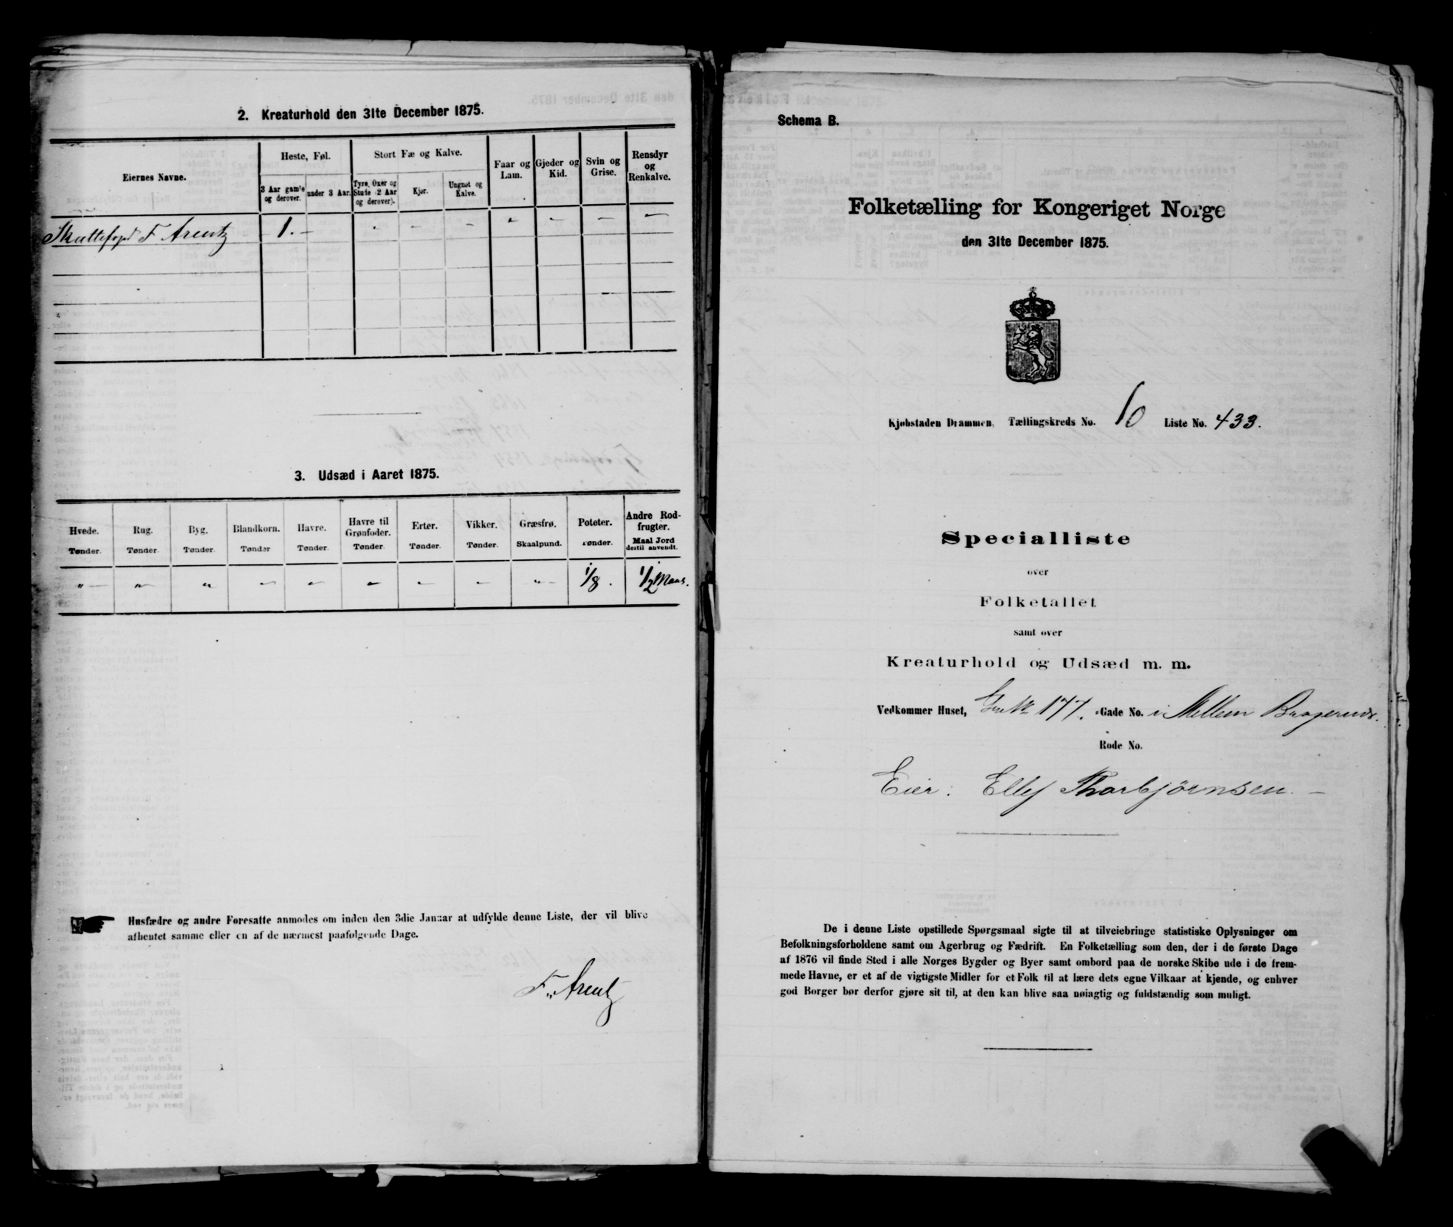 2. Kreaturhold den 31te December 1875.
Eiernes Navne.
Heste, Føl.
Stort Fæ og Kalve.
Faar og Lam.
Gjeder og Kid.
Svin og Grise.
Rensdyr og Renkalve.
3 Aar gamle og derover.
under 3 Aar.
Tyre, Oxer og Stude (2 Aar og derover).
Kjør.
Ungnøt og Kalve.
Skattefogd F Arentz 1. - - - - - - - -
3. Udsæd i Aaret 1875.
Hvede. Tønder.
Rug. Tønder.
Byg. Tønder.
Blandkorn. Tønder
Havre. Tønder.
Havre til Grønfoder. Tønder.
Erter. Tønder.
Vikker. Tønder.
Græsfrø. Skaalpund.
Poteter. Tønder.
Andre Rodfrugter. Maal Jord dertil anvendt.
" - " - " - - - - - - " - 1/8. 1/2 Maal.
Husfædre og andre Foresatte anmodes om inden den 3die Januar at udfylde denne Liste, der vil blive
afhentet samme eller en af de nærmest paafølgende Dage.
F. Arentz
Schema B.
Folketælling for Kongeriget Norge
den 31te December 1875.
Kjøbstaden Drammen. Tællingskreds No. 10 Liste No. 433.
Specialliste
over
Folketallet
samt over
Kreaturhold og Udsæd m. m.
Vedkommer Huset, 177. Gade No. i Mellem Bragernæs.
Rode No.
Eier: Ellef Thorbjörnsen. -
De i denne Liste opstillede Spørgsmaal sigte til at tilveiebringe statistiske Oplysninger om
Befolkningsforholdene samt om Agerbrug og Fædrift. En Folketælling som den, der i de første Dage
af 1876 vil finde Sted i alle Norges Bygder og Byer samt ombord paa de norske Skibe ude i de frem-
mede Havne, er et af de vigtigste Midler for et Folk til at lære dets egne Vilkaar at kjende, og enhver
god Borger bør derfor gjøre sit til, at den kan blive saa nøiagtig og fuldstændig som muligt.